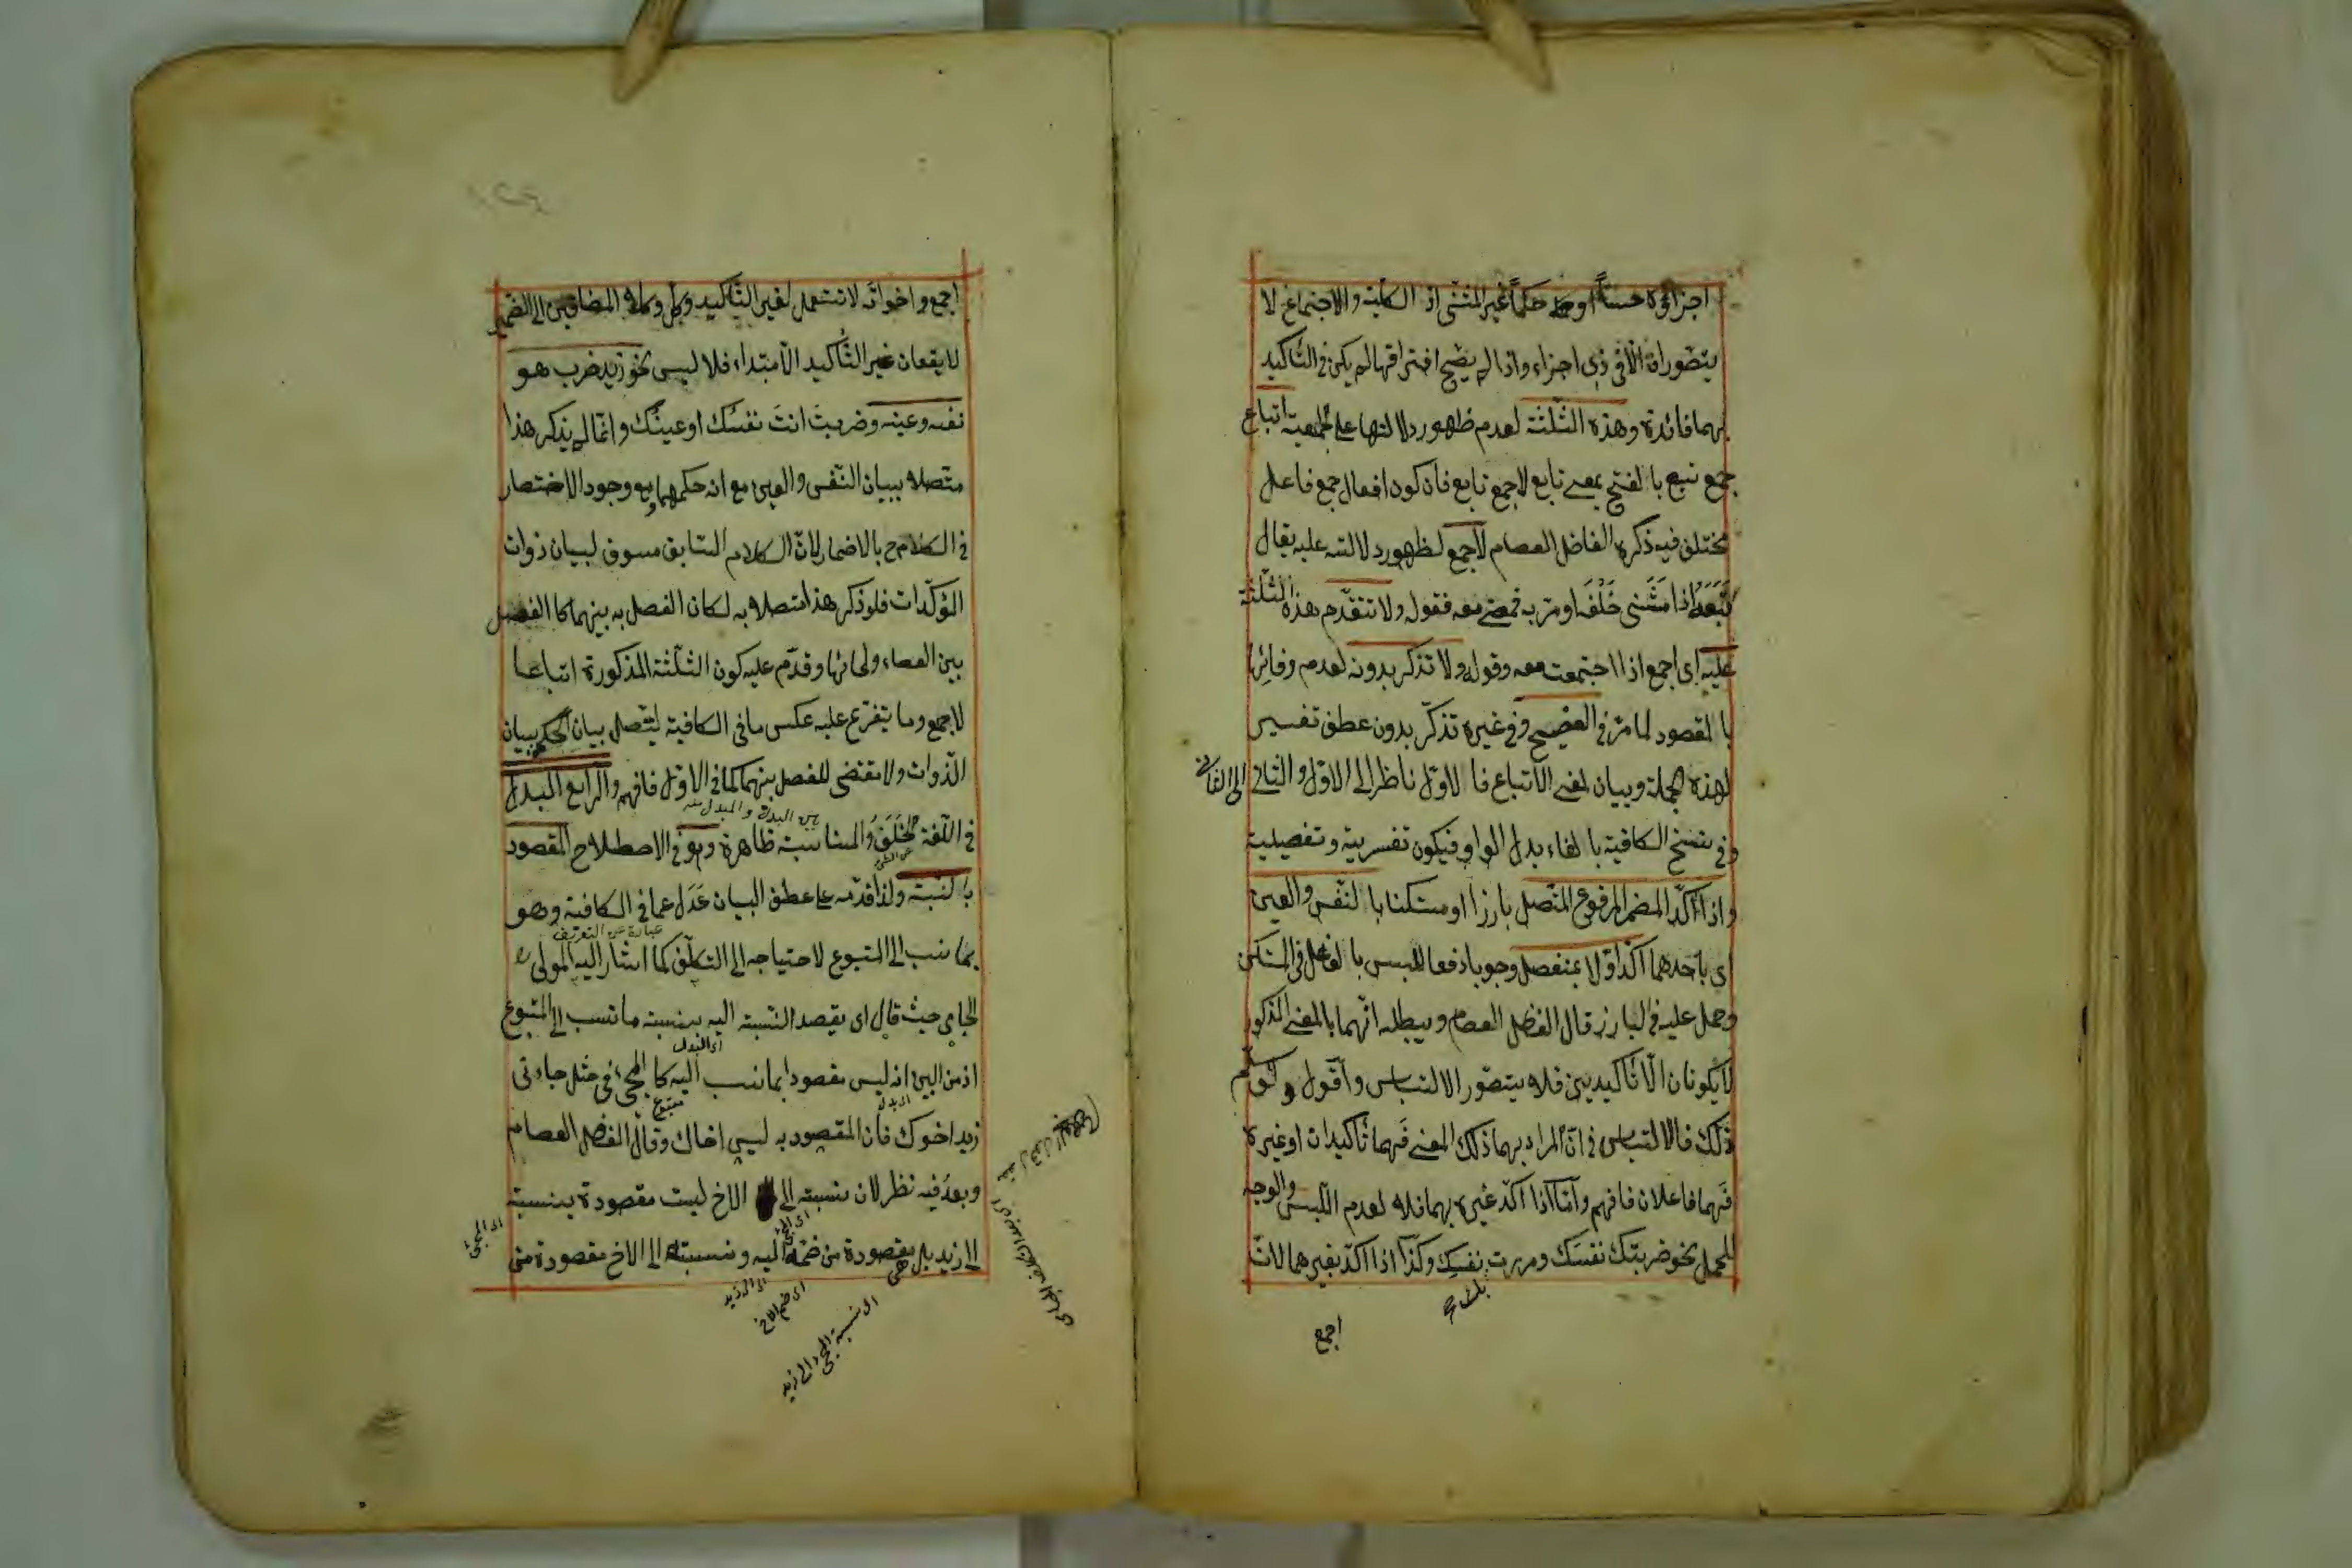 اجزاؤه حسا او حكما غير المثنى اذ الكلية والاجتماع لا
يتصوران الا فى ذى اجزاء واذا لم يصح افتراقها لم يكن فى التأكيد
بهما فائدة وهذه الثلثة لعدم ظهور دلالتها على الجمعية اتباع
جمع تبع بالفتح بمعنى تابع لاجمع تابع فان كون افعال جمع فاعل
مختلف فيه ذكره الفاضل العصام لاجمع لظهور دلالته عليه يقال
تبعه اذا مشى خلفه او مر به فمضى معه فقوله ولا تتقدم هذه الثلثة
عليه اى اجمع اذا اجتمعت معه وقوله ولا تذكر بدونه لعدم وفائها
بالمقصود لما مر فى الفصيح وفى غيره تذكر بدون عطف تفسير
لهذه الجملة وبيان لمعنى الاتباع فالاول ناظر الى الاول والثانى الى الثانى
وفى بعض نسخ الكافية بالفاء بدل الواو فيكون تفسرية وتفصيلية
واذا اكد المضمر المرفوع المتصل بارزا او مستكنا بالنفس والعين
اى باحدهما اكد اولا بمنفصل وجوبا دفعا للبس بالفاعل فى المستكن
وحمل عليه فى البارز قال الفاضل العصام ويبطله انهما بالمعنى المذكور
لا يكونان الا تأكيديين فلا يتصور الالتباس واقول ولو سلم
ذلك فالالتباس فى ان المراد بهما ذلك المعنى فهما تأكيدان او غيره
فهما فاعلان فافهم واما اذا اكد غيره بهما فلا لعدم اللبس والوجه
للحمل نحو ضربتك نفسك ومررت بك نفسك وكذا اذا اكد بغيرهما لان
اجمع
اجمع واخواته لا تستعمل لغير التأكيد وكل وكلا المضافين الى الضمير
لا يقعان غير التأكيد الا مبتداء فلا لبس نحو زيد ضرب هو
نفسه وعينه وضربت انت نفسك او عينك وانما لم يذكر هذا
متصلا ببيان النفس والعين مع انه حكمهما ومع وجود الاختصار
فى الكلام ح بالاضمار لان الكلام السابق مسوق لبيان ذوات
المؤكدات فلو ذكر هذا متصلا به لكان الفصل به بينهما كالفصل
بين العصاء ولحائها وقدم عليه كون الثلثة المذكورة اتباعا
لاجمع وما يتفرع عليه عكس ما فى الكافية ليتصل بيان الحكم ببيان
الذوات ولا مقتضى للفصل بينهما كما فى الاول فافهم والرابع البدل
بين البدل والمبدل منه
فى اللغة الخلف والمناسبة ظاهرة وهو فى الاصطلاح المقصود
بالنسبة ولذا قدمه على عطف البيان عدل عما فى الكافية وهو
عبارة عن التعريف
بما نسب الى المتبوع لاحتياجه الى التكلف كما اشار اليه المولى
الجامى حيث قال اى يقصد النسبة اليه بنسبة ما نسب الى المتبوع
اى البدل
اذ من البين انه ليس مقصودا بما نسب اليه كالمجئ فى مثل جاءنى
زيد اخوك فان المقصود به ليس اخاك وقال الفاضل العصام
وبعد فيه نظر لان نسبته الى الاخ ليست مقصودة بنسبته
الى زيد بل هى مقصودة من ضمه اليه ونسبته الى الاخ مقصودة من
اى المجئ
اى الى زيد
اى ضم الاخ
اى نسبة المجئ الى زيد